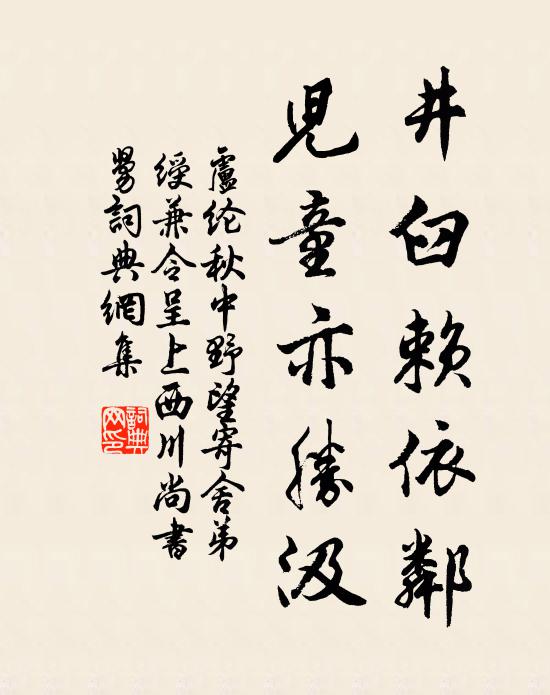 井臼賴依鄰
兒童亦勝汲
盧纶秋中野望寄舍弟
绶兼令呈上西川尚書
舅詞典網集
詞典网印